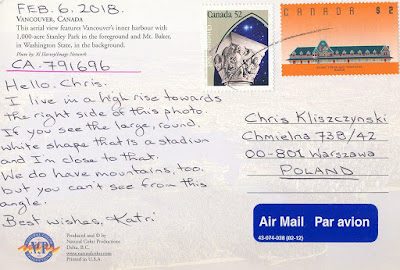 FEB. 6. 2018.
VANCOUVER, CANADA
This aerial view features Vancouver's inner harbour with
1,000-acre Stanley Park in the foreground and Mt. Baker,
in Washington State, in the background.
Photo by: Al Harvey/Image Network
CA-791696
Hello, Chris.
I live in a high rise towards
the right side of this photo.
If you see the large, round,
white shape that is a stadium
and I'm close to that.
We do have mountains, too,
but you can't see from this
angle.
Best wishes, Katri
Produced and © by
Natural Color Productions
Delta, B.C.
www.naturalcolor.com
Printed in U.S.A.
NCP
Canada 52
CANADA $2
Chris Kliszczynski
Chmielna 73B/42
00-801 Warszawa
POLAND
Air Mail Par avion
43-074-038 (02-12)